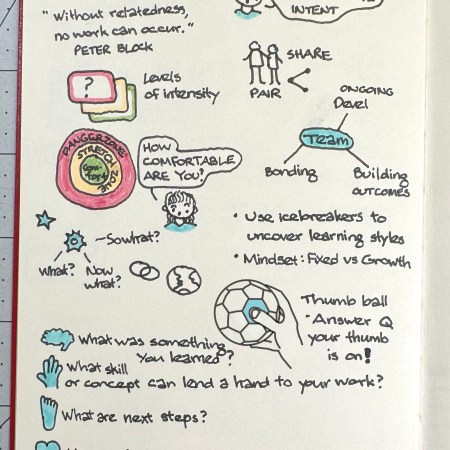 INTENT
"Without relatedness,
no work can occur."
PETER BLOCK
SHARE
PAIR
?
Levels
of intensity
ONGOING
Devel
Team
Bonding
Building
OUTCOMES
DANGER ZONE
STRETCH ZONE
Com-
fort
HOW
COMFORTABLE
ARE YOU?
• Use icebreakers to
uncover learning styles
• Mindset: Fixed vs Growth
So what?
What?
Now
what?
Thumb ball
• Answer Q
your thumb
is on!
What was something
you learned?
What skill
or concept can lend a hand to your work?
What are next steps?